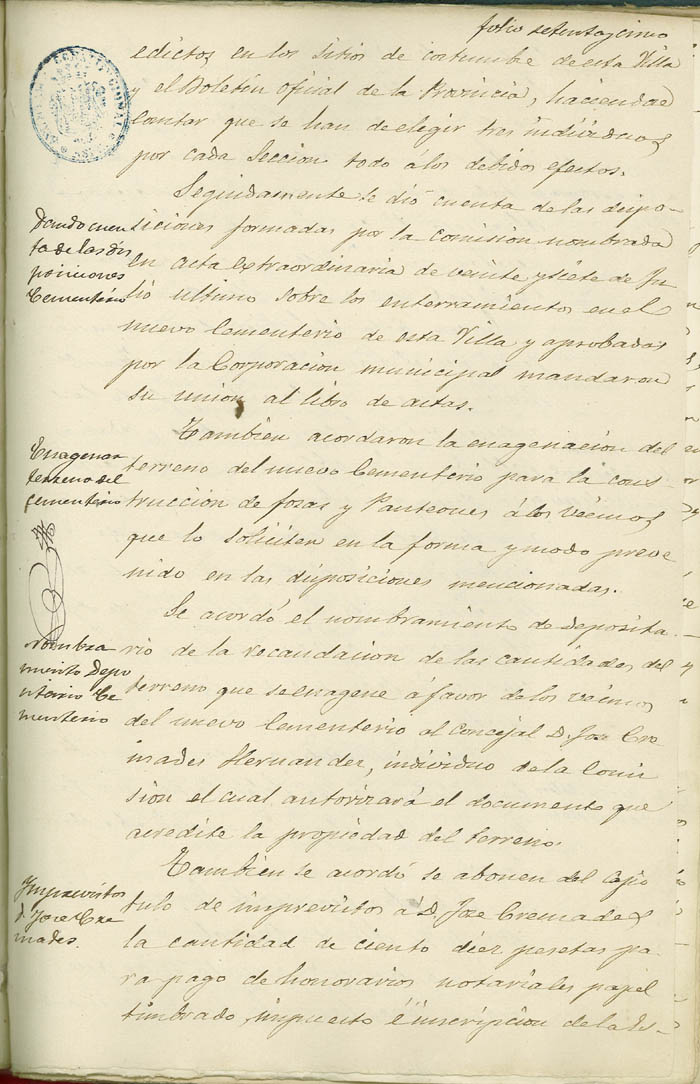 folio setenta y cinco
edictos en los sitios de costumbre de esta Villa
y el Boletin Oficial de la Provincia, haciendose
constar que se han de elegir tres individuos
por cada Seccion todo a los debidos efectos.
Seguidamente se dió cuenta de las dispo-
Dando cuen
ta de las dis
posiciones
Cementerio
siciones formadas por la comision nombrada
en acta extraordinaria de veinte y siete de Ju
lio ultimo sobre los enterramientos en el
nuevo Cementerio de esta Villa y aprobadas
por la Corporacion municipal mandaron
su union al libro de actas.
Tambien acordaron la enagenacion del
Enagenar
terreno del
Cementerio
terreno del nuevo Cementerio para la cons
truccion de fosas y Panteones á los vecinos
que lo soliciten en la forma y modo preve
nido en las disposiciones mencionadas.
Se acordó el nombramiento de Deposita-
Nombra
miento Depo
sitario Ce
menterio
rio de la recaudacion de las cantidades del
terreno que se enagene á favor de los vecinos
del nuevo Cementerio al Concejal D. Jose Cre
mades Hernandez, individuo de la Comi
sion el cual autorizará el documento que
acredite la propiedad del terreno.
Tambien se acordó se abonen del Capi
Imprevistos
D. Jose Cre
mades.
tulo de imprevistos á D. Jose Cremades
la cantidad de ciento diez pesetas pa
ra pago de honorarios notariales papel
timbrado, impuesto é inscripcion de la Es-